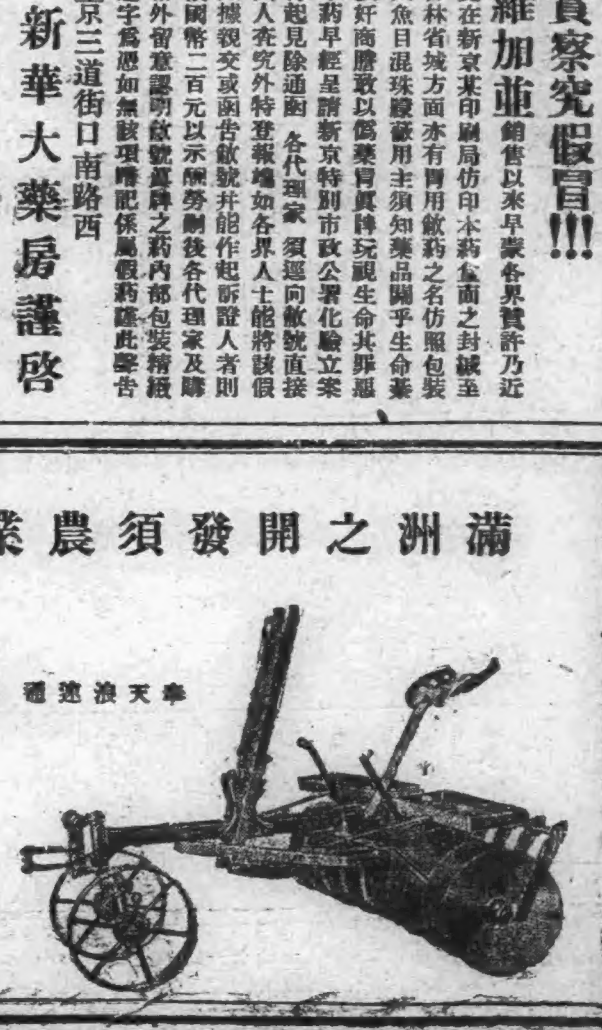 員察究假冒!!!
維加亜銷售以來早蒙各界賛許乃近
在新京某印刷局仿印本葯盒面之封緘至
林省城方面亦有冒用敝葯之名仿照包裝
魚目混珠矇蔽用主須知藥品關乎生命
奸商膽敢以僞藥冒眞牌玩視生命其罪惡
葯早經呈請新京特別市政公署化驗立案
起見除通函 各代理家 須逕向敝號直接
人査究外特登報端如各界人士能將該假
據親交或函告敝號幷能作起訴證人者則
國幣二百元以示酬勞嗣後各代理家及購
外留意認明敝號眞牌之葯內部包裝精緻
字爲憑如無該項暗記係屬假葯謹此聲告
京三道街口南路西
新華大藥房謹啓
滿洲之開發須農業
奉天浪速通